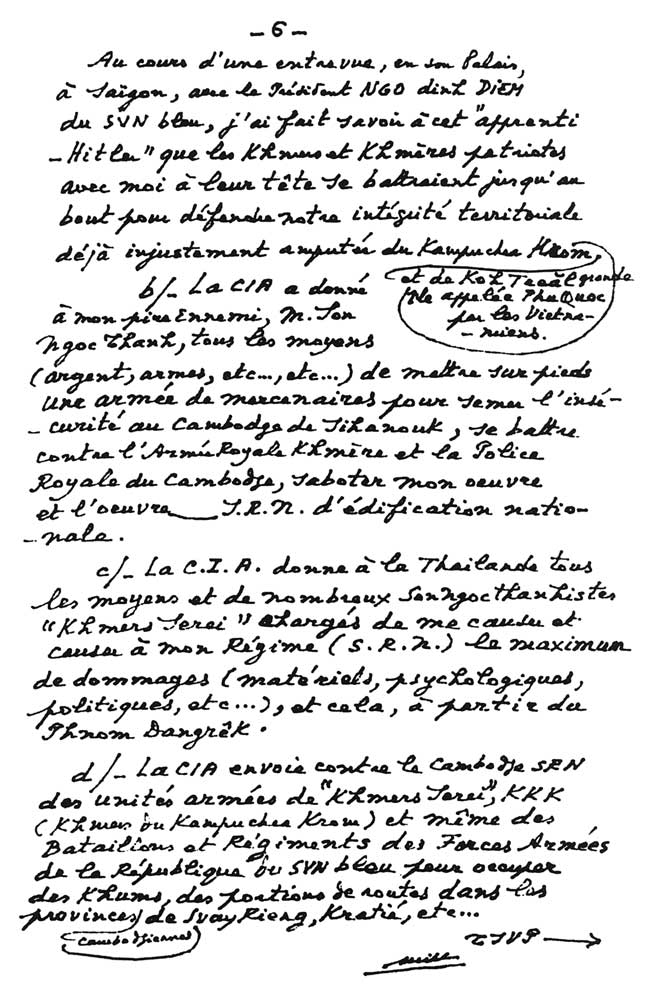 - 6 -
Au cours d'une entrevue, en son Palais,
à Saïgon, avec le Président NGO dinh DIEM
du SVN bleu, j'ai fait savoir à cet "apprenti
- Hitler" que les Khmers et Khmères patriotes
avec moi à leur tête se battraient jusqu'au
bout pour défendre notre intégrité territoriale
déjà injustement amputée du Kampuchea Krom,
et de Koh Tral grande
île appelée Phu Quoc
par les Vietna-
- miens.
b/- La CIA a donné
à mon pire Ennemi, M. Son
Ngoc Thanh, tous les moyens
(argent, armes, etc..., etc...) de mettre sur pieds
une armée de mercenaires pour semer l'insé-
- curité au Cambodge de Sihanouk, se battre
contre l'Armée Royale Khmère et la Police
Royale du Cambodge, saboter mon oeuvre
et l'oeuvre S.R.N. d'édification natio-
- nale.
c/- La C.I.A. donne à la Thaïlande tous
les moyens et de nombreux Sonngocthanhistes
"Khmers Serei" chargés de me causer et
causer à mon Régime (S.R.N.) le maximum
de dommages (matériels, psychologiques,
politiques, etc...), et cela, à partir du
Phnom Dangrêk.
d/- La CIA envoie contre le Cambodge SRN
des unités armées de "Khmers Serei", KKK
(Khmers du Kampuchea Krom) et même des
Bataillons et Régiments des Forces Armées
de la République du SVN bleu pour occuper
des Khums, des portions de routes dans les
provinces de Svay Rieng, Kratié, etc...
cambodgiennes
TSVP →